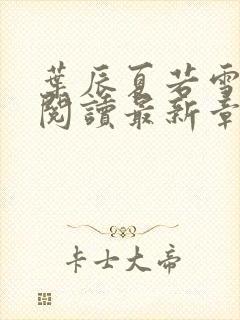 葉辰夏若雪
閱讀最新章
卡士大帝